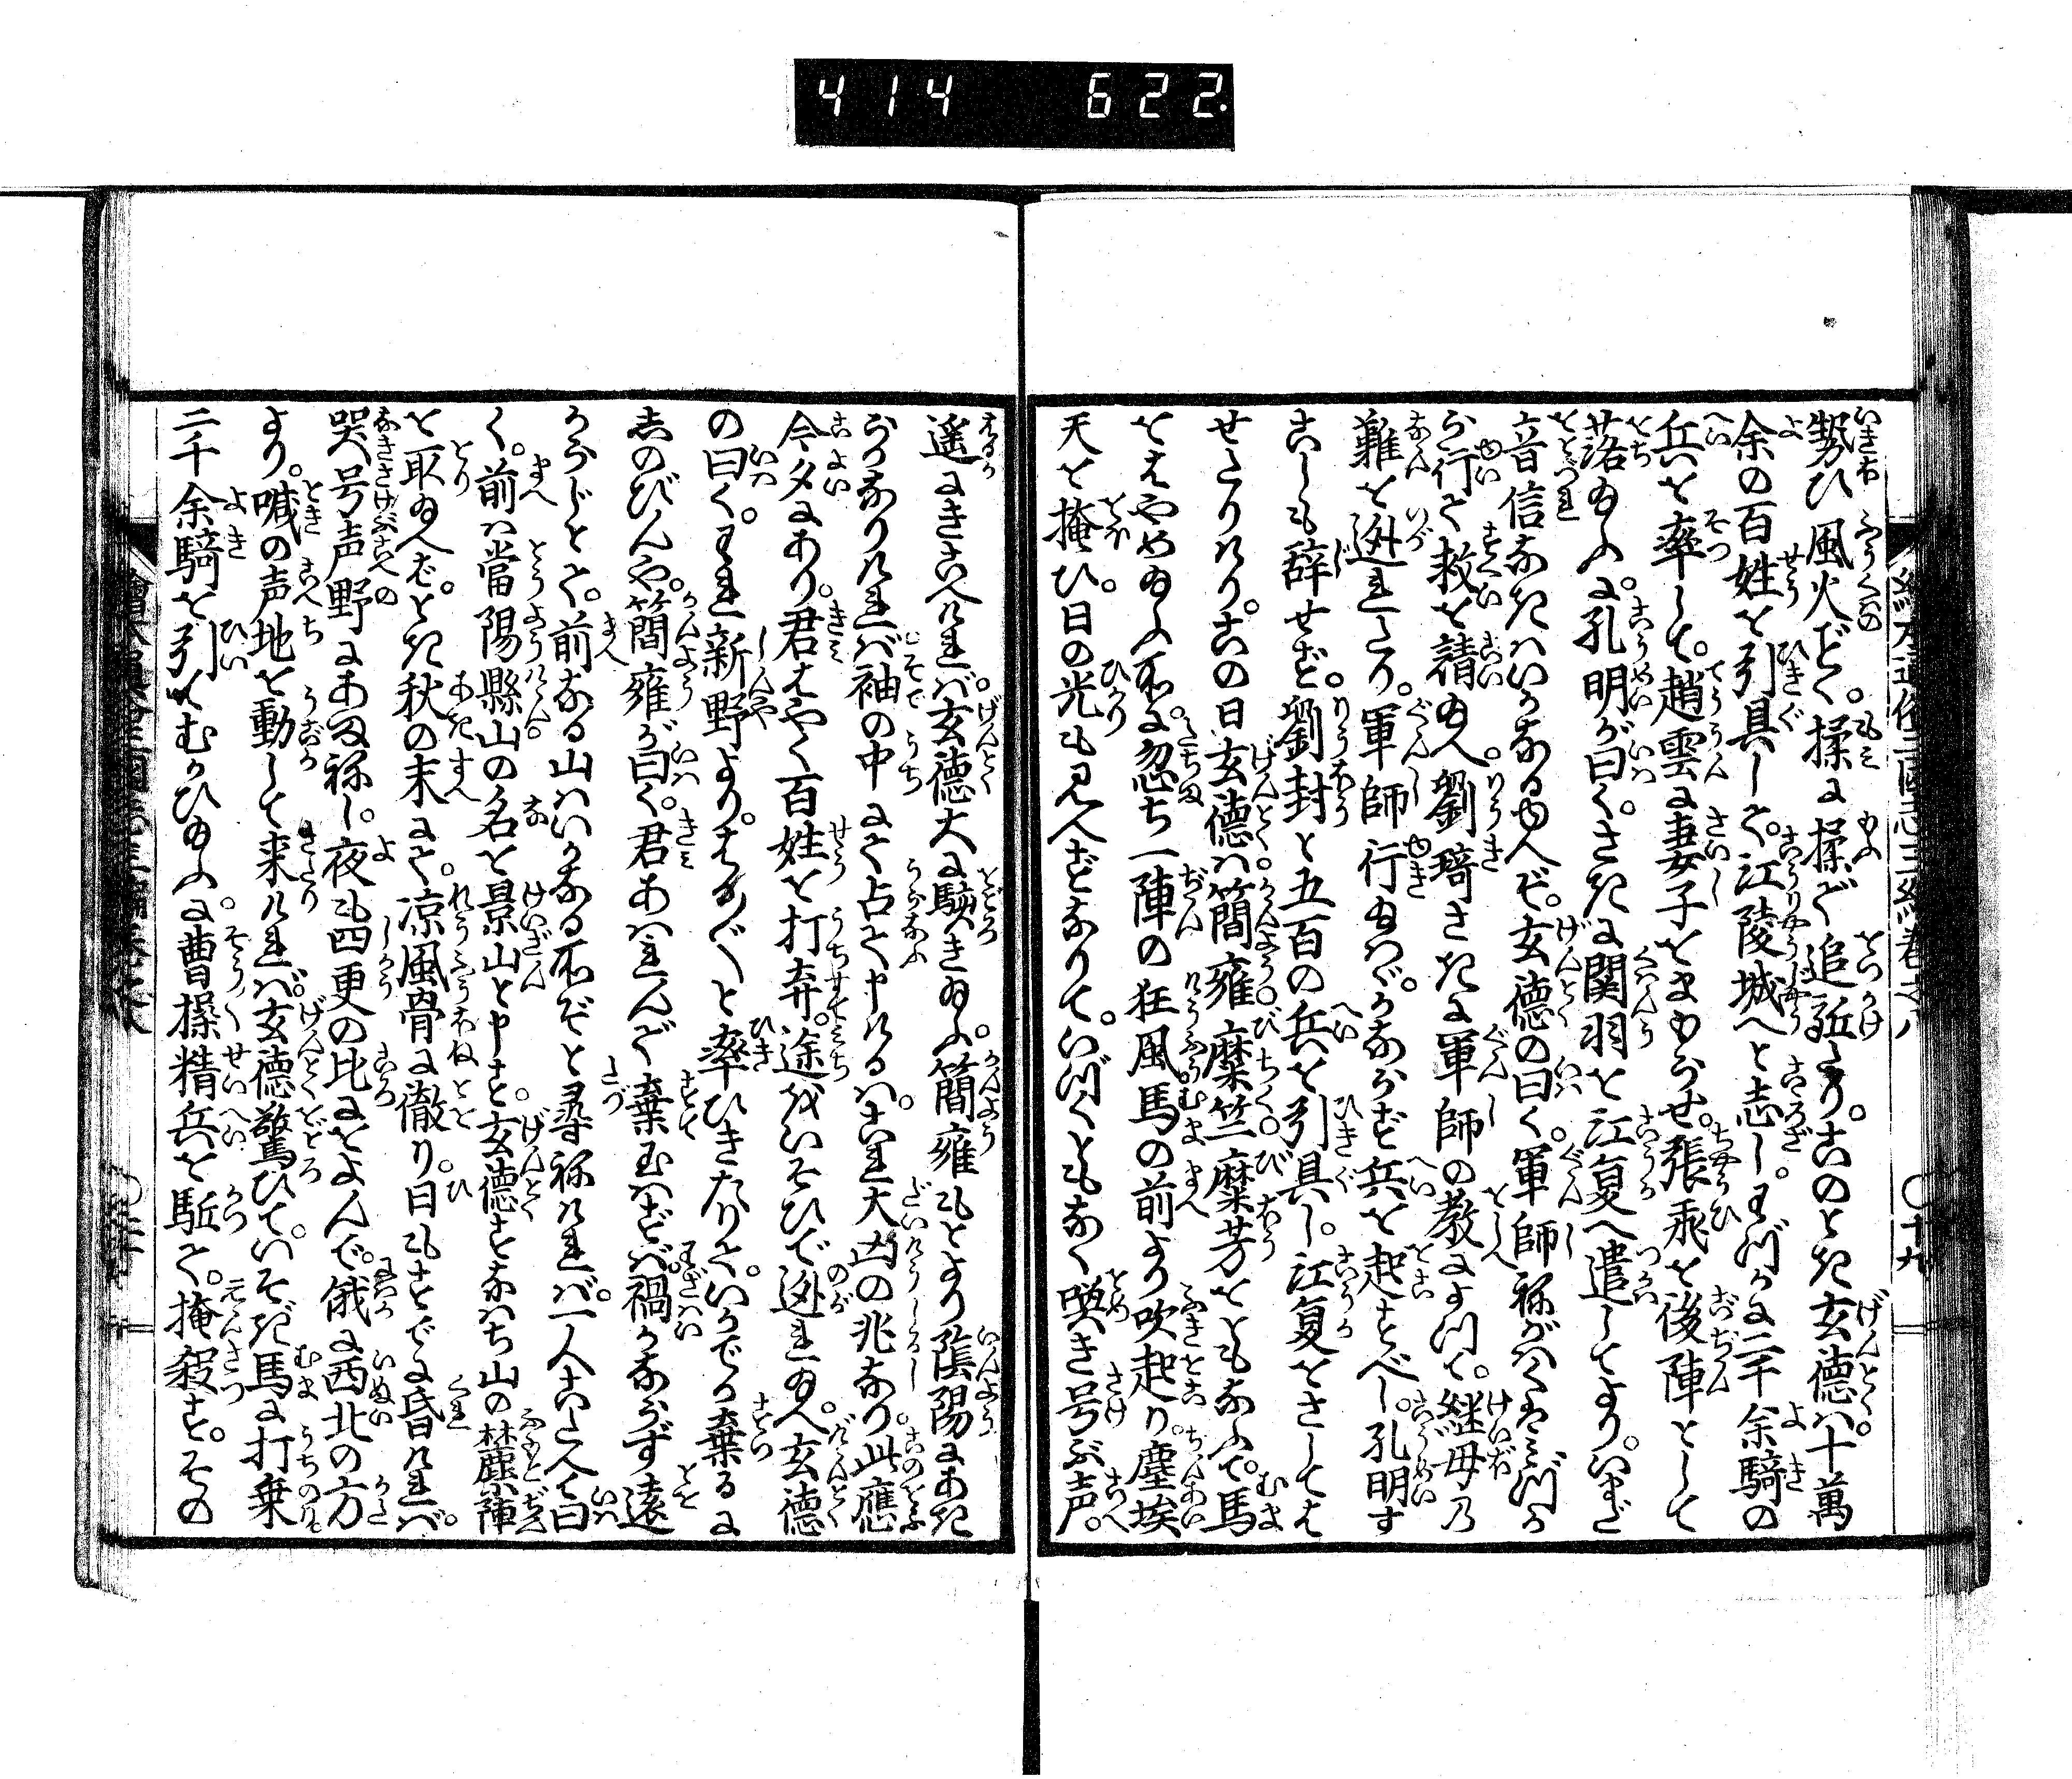 414 622.
勢ひ風火どく。揉に揉で追近たり。このとき玄徳は。十萬
余の百姓を引具して。江陵城へと志し。わづかに二千余騎の
兵を率して。趙雲に妻子をまもらせ。張飛を後陣として
落ゆふに。孔明が曰く。さきに関羽を江夏へ遣してより。いまだ
音信なきはいかなるゆへぞ。玄徳の曰く。軍師ねがはくはみづから
行て救を請ゆへ。劉琦さきに軍師の教によつて。継母の
難を逃れたり。軍師行ゆはゞ。かならず兵を起すべし。孔明す
こしも辞せず。劉封と五百の兵を引具し。江夏をさしては
せたりけり。この日玄徳は。簡雍。糜竺。糜芳をともなふて。馬
をはやめゆふ所に。忽ち一陣の狂風馬の前より吹起り。塵埃
天を掩ひ。日の光も見へずなりて。いづくともなく喚き号ぶ声。
遥にきこへければ。玄徳大に駭きゆふ。簡雍もとより陰陽にあき
らかなりければ袖の中にて占て申けるは。これ大凶の兆なり。此應
今夕にあり。君はやく百姓を打弃。途をいそひで逃れゆへ。玄徳
の曰く。われ新野より。はる〴〵と率ひきたりて。いかでか棄るに
しのびんや。簡雍が曰く。君あはれんで棄玉はずば。禍かならず遠
からじとて。前なる山はいかなる所ぞと尋ねければ。一人こたへて曰
く。前は當陽縣山の名を景山と申す。玄徳すなはち山の麓に陣
を取ゆへば。とき秋の末にて。凉風骨に徹り。日もすでに昏ければ。
哭号声野にあまねし。夜も四更の比におよんで。俄に西北の方
より。喊の声地を動して来ければ。玄徳驚ひて。いそぎ馬に打乗
二千余騎を引てむかひゆふに。曹操精兵を駈て。掩殺す。その